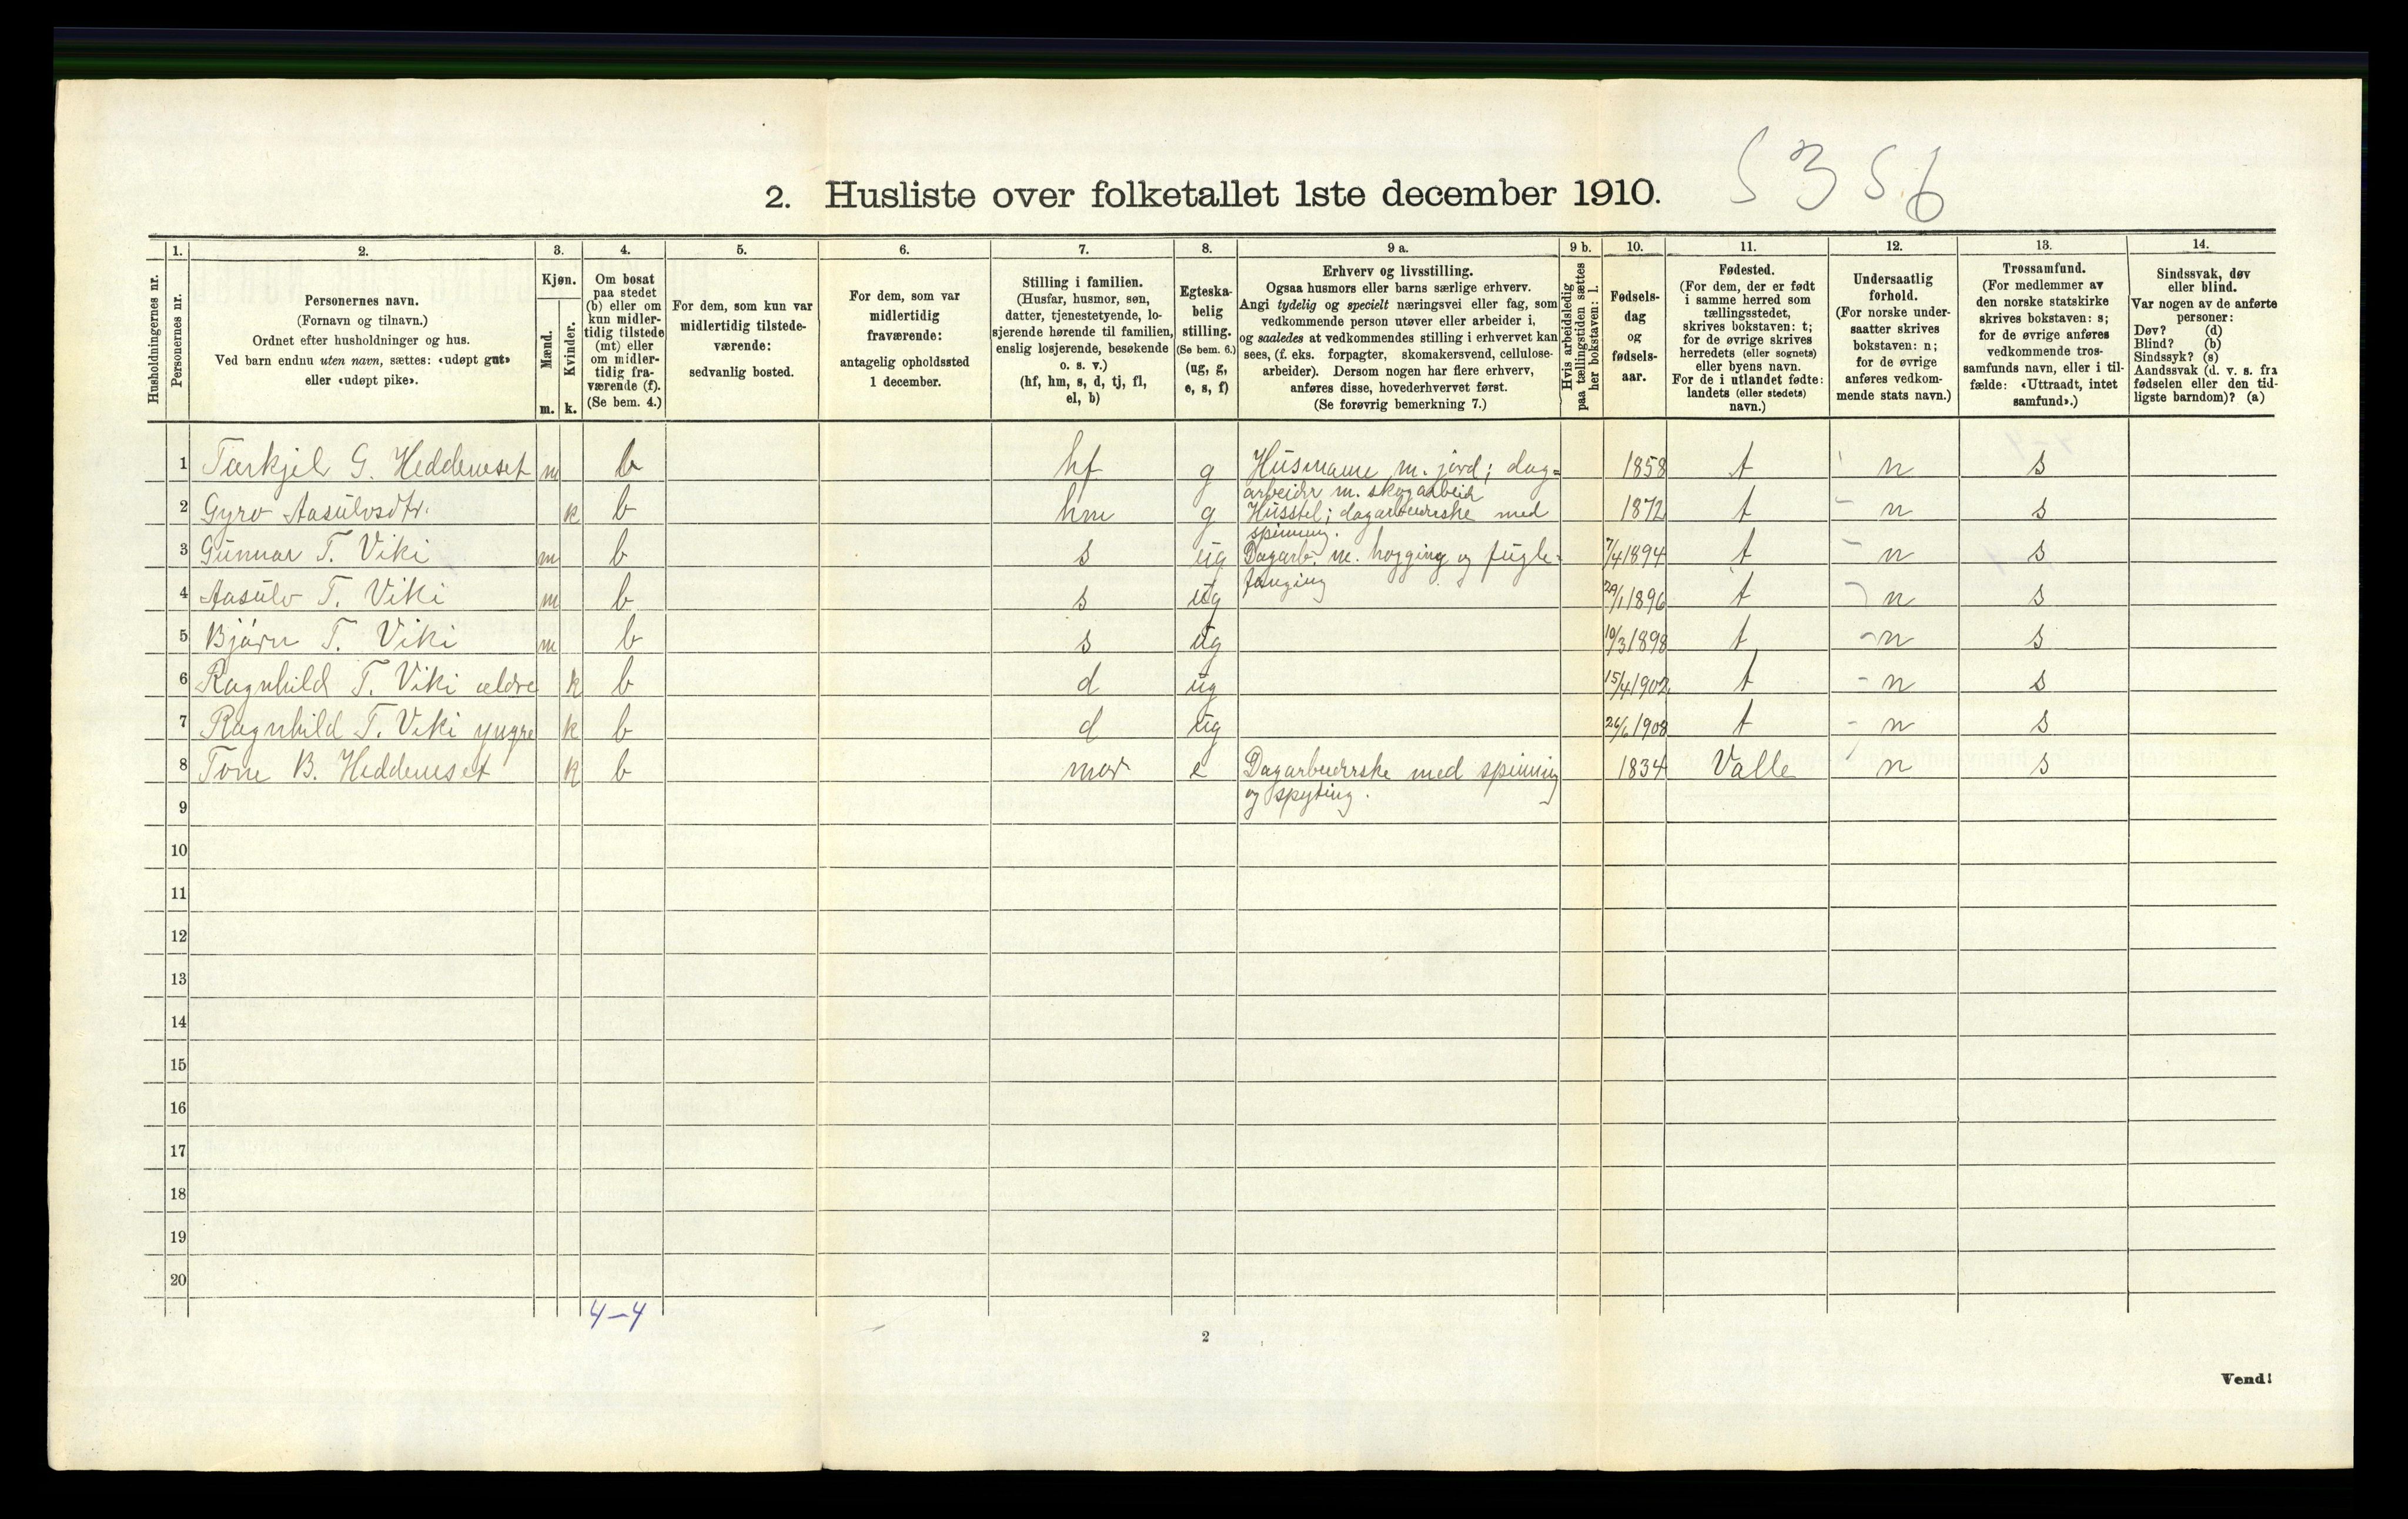 2. Husliste over folketallet 1ste december 1910. 5356
Husholdningernes nr.
1. Personernes nr.
2. Personernes navn.
(Fornavn og tilnavn.)
Ordnet efter husholdninger og hus.
Ved barn endnu uten navn, sættes: «udøpt gut»
eller «udøpt pike».
3. Kjøn.
Mænd. Kvinder.
m. k.
4. Om bosat
paa stedet
(b) eller om
kun midler-
tidig tilstede
(mt) eller
om midler-
tidig fra-
værende (f).
(Se bem. 4.)
5. For dem, som kun var
midlertidig tilstede-
værende:
sedvanlig bosted.
6. For dem, som var
midlertidig
fraværende:
antagelig opholdssted
1 december.
7. Stilling i familien.
(Husfar, husmor, søn,
datter, tjenestetyende, lo-
sjerende hørende til familien,
enslig losjerende, besøkende
o. s. v.)
(hf, hm, s, d, tj, fl,
el, b)
8. Egteska-
belig
stilling.
(Se bem. 6.)
(ug, g,
e, s, f)
9 a. Erhverv og livsstilling.
Ogsaa husmors eller barns særlige erhverv.
Angi tydelig og specielt næringsvei eller fag, som
vedkommende person utøver eller arbeider i,
og saaledes at vedkommendes stilling i erhvervet kan
sees, (f. eks. forpagter, skomakersvend, cellulose-
arbeider). Dersom nogen har flere erhverv,
anføres disse, hovederhvervet først.
(Se forøvrig bemerkning 7.)
9 b. Hvis arbeidsledig
paa tællingstiden sættes
her bokstaven: l.
10. Fødsels-
dag
og
fødsels-
aar.
11. Fødested.
(For dem, der er født
i samme herred som
tællingsstedet,
skrives bokstaven: t;
for de øvrige skrives
herredets (eller sognets)
eller byens navn.
For de i utlandet fødte:
landets (eller stedets)
navn.)
12. Undersaatlig
forhold.
(For norske under-
saatter skrives
bokstaven: n;
for de øvrige
anføres vedkom-
mende stats navn.)
13. Trossamfund.
(For medlemmer av
den norske statskirke
skrives bokstaven: s;
for de øvrige anføres
vedkommende tros-
samfunds navn, eller i til-
fælde: «Uttraadt, intet
samfund».)
14. Sindssvak, døv
eller blind.
Var nogen av de anførte
personer:
Døv? (d)
Blind? (b)
Sindssyk? (s)
Aandssvak (d. v. s. fra
fødselen eller den tid-
ligste barndom)? (a)
1 Tarkjel G. Heddeneset m b hf g Husmann m. jord; dag=
arbeider m. skogarbeid 1858 t n s
2 Gyro Aasulvsdtr. k b hm g Husstel; dagarbeierske med
spinning. 1872 t n s
3 Gunnar T. Viki m b s ug Dagarb. m. hogging og fugle-
fanging 7/4 1894 t n s
4 Aasulv T. Viki m b s ug 29/1 1896 t n s
5 Bjørn T. Viki m b s ug 10/3 1898 t n s
6 Ragnhild T. Viki ældre k b d ug 15/4 1902 t n s
7 Ragnhild T. Viki yngre k b d ug 26/6 1908 t n s
8 Tone B. Heddeneset k b mor e Dagarbeierske med spinning
og spyting. 1834 Valle n s
9
10
11
12
13
14
15
16
17
18
19
20
4-4
2
Vend!